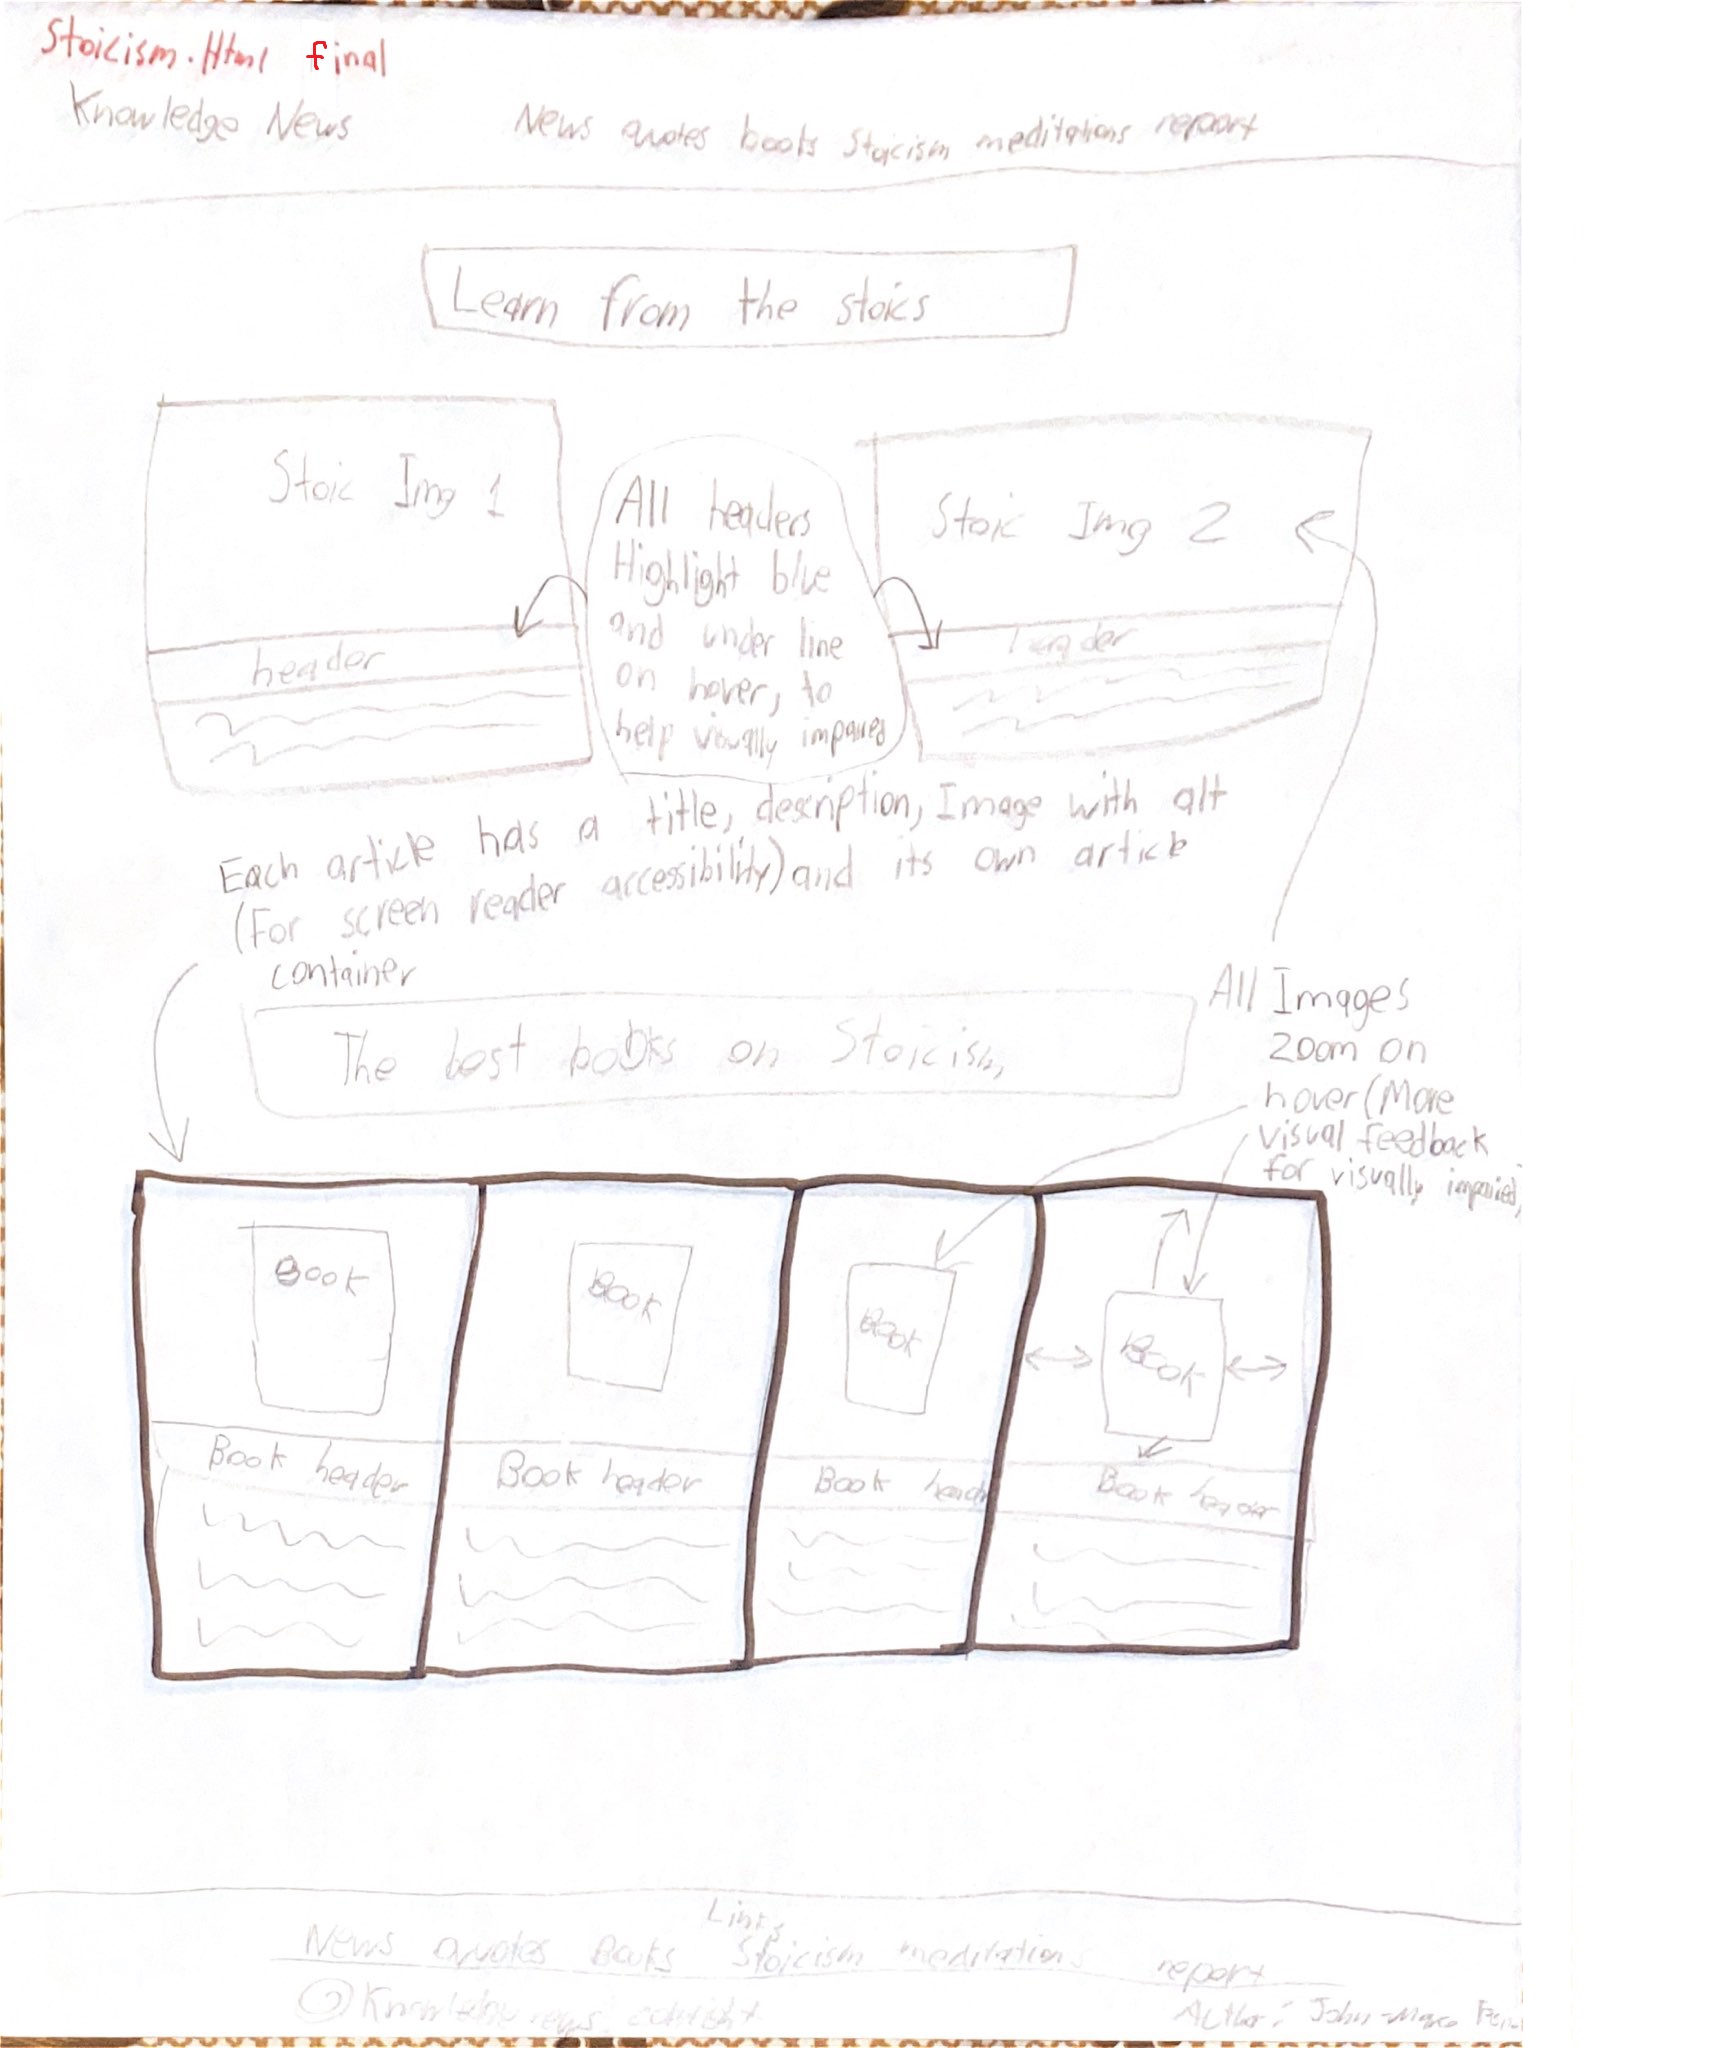 Stoicism.Html final
Knowledge News
News quotes books Stoicism meditations report
Learn from the stoics
Stoic Img 1
All headers
Highlight blue
and under line
on hover, to
help visually impaired
Stoic Img 2
header
header
Each article has a title, description, Image with alt
(For screen reader accessibility) and its own article
container
The best books on Stoicism
All Images
zoom on
hover (More
visual feedback
for visually impaired)
Book
Book
Book
Book
Book header
Book header
Book header
Book header
Links
News quotes Books Stoicism meditations report
© Knowledge news
Author: John-Marco